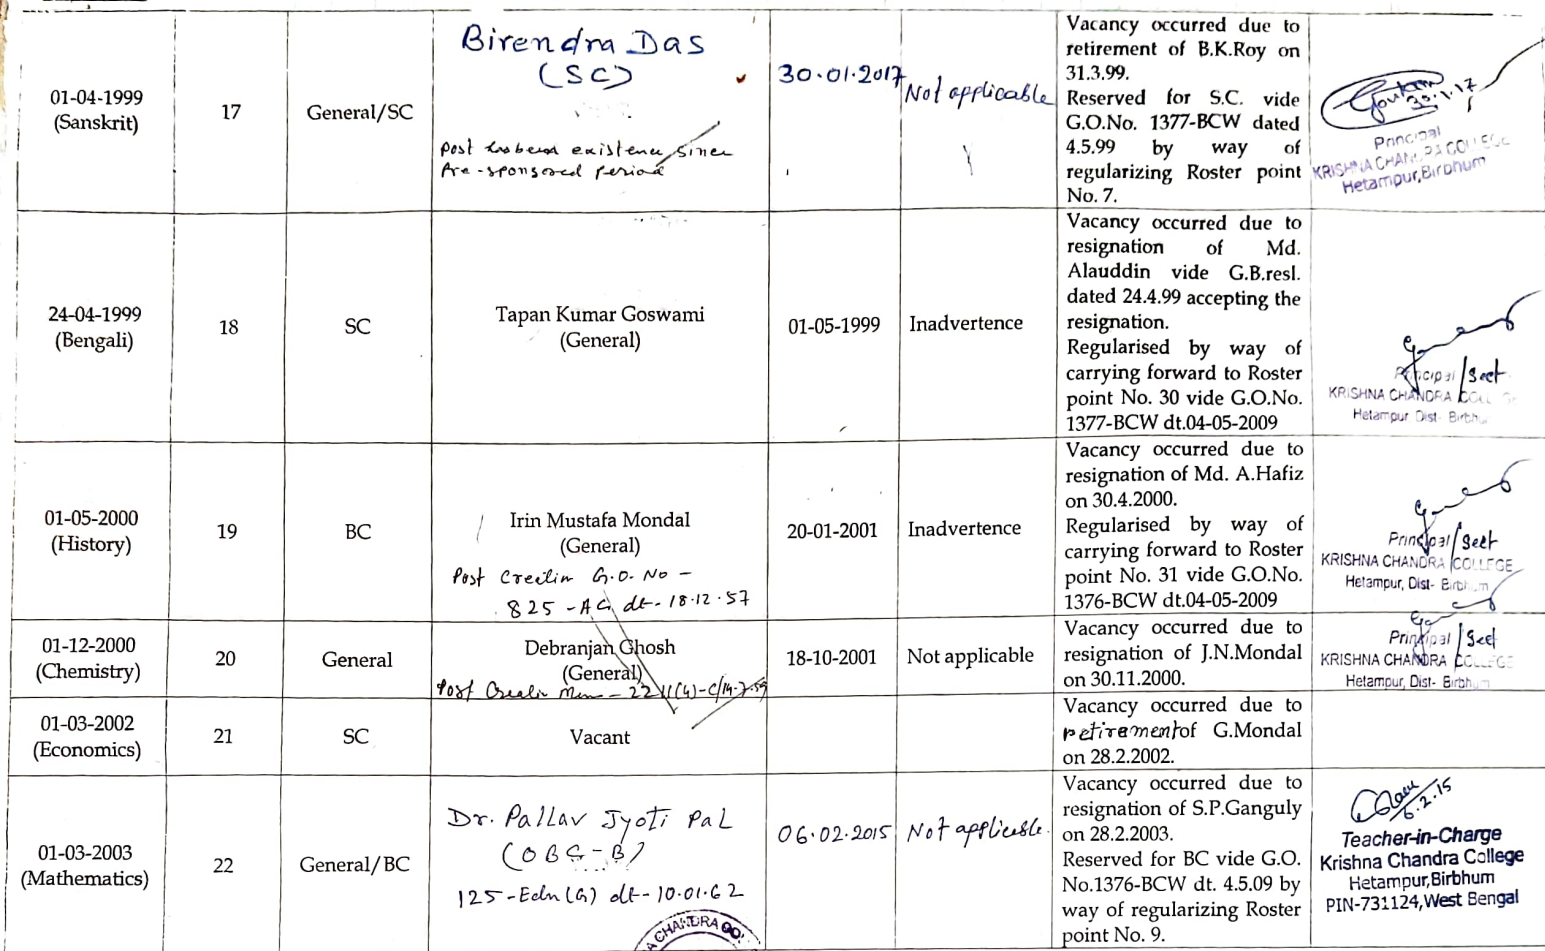 01-04-1999
(Sanskrit)
17
General/SC
Birendra Das
(SC)
Post has been existence since
Pre-sponsored period
30.01.2017
Not applicable
Vacancy occurred due to
retirement of B.K.Roy on
31.3.99.
Reserved for S.C. vide
G.O.No. 1377-BCW dated
4.5.99 by way of
regularizing Roster point
No. 7.
30.1.17
Principal
KRISHNA CHANDRA COLLEGE
Hetampur,Birbhum
24-04-1999
(Bengali)
18
SC
Tapan Kumar Goswami
(General)
01-05-1999
Inadvertence
Vacancy occurred due to
resignation of Md.
Alauddin vide G.B.resl.
dated 24.4.99 accepting the
resignation.
Regularised by way of
carrying forward to Roster
point No. 30 vide G.O.No.
1377-BCW dt.04-05-2009
Principal/Sect
KRISHNA CHANDRA COLLEGE
Hetampur Dist- Birbhum
01-05-2000
(History)
19
BC
Irin Mustafa Mondal
(General)
Post Creation G.O. No -
825 - AG dt- 18.12.57
20-01-2001
Inadvertence
Vacancy occurred due to
resignation of Md. A.Hafiz
on 30.4.2000.
Regularised by way of
carrying forward to Roster
point No. 31 vide G.O.No.
1376-BCW dt.04-05-2009
Principal/Sect
KRISHNA CHANDRA COLLEGE
Hetampur, Dist- Birbhum
01-12-2000
(Chemistry)
20
General
Debranjan Ghosh
(General)
Post
18-10-2001
Not applicable
Vacancy occurred due to
resignation of J.N.Mondal
on 30.11.2000.
Principal/Sect
KRISHNA CHANDRA COLLEGE
Hetampur, Dist- Birbhum
01-03-2002
(Economics)
21
SC
Vacant
Vacancy occurred due to
retirement of G.Mondal
on 28.2.2002.
01-03-2003
(Mathematics)
22
General/BC
Dr. Pallav Jyoti Pal
(OBC-B)
125-Edn(G) dt-10.01.62
06.02.2015
Not applicable.
Vacancy occurred due to
resignation of S.P.Ganguly
on 28.2.2003.
Reserved for BC vide G.O.
No.1376-BCW dt. 4.5.09 by
way of regularizing Roster
point No. 9.
6.2.15
Teacher-in-Charge
Krishna Chandra College
Hetampur,Birbhum
PIN-731124,West Bengal
A CHANDRA CO